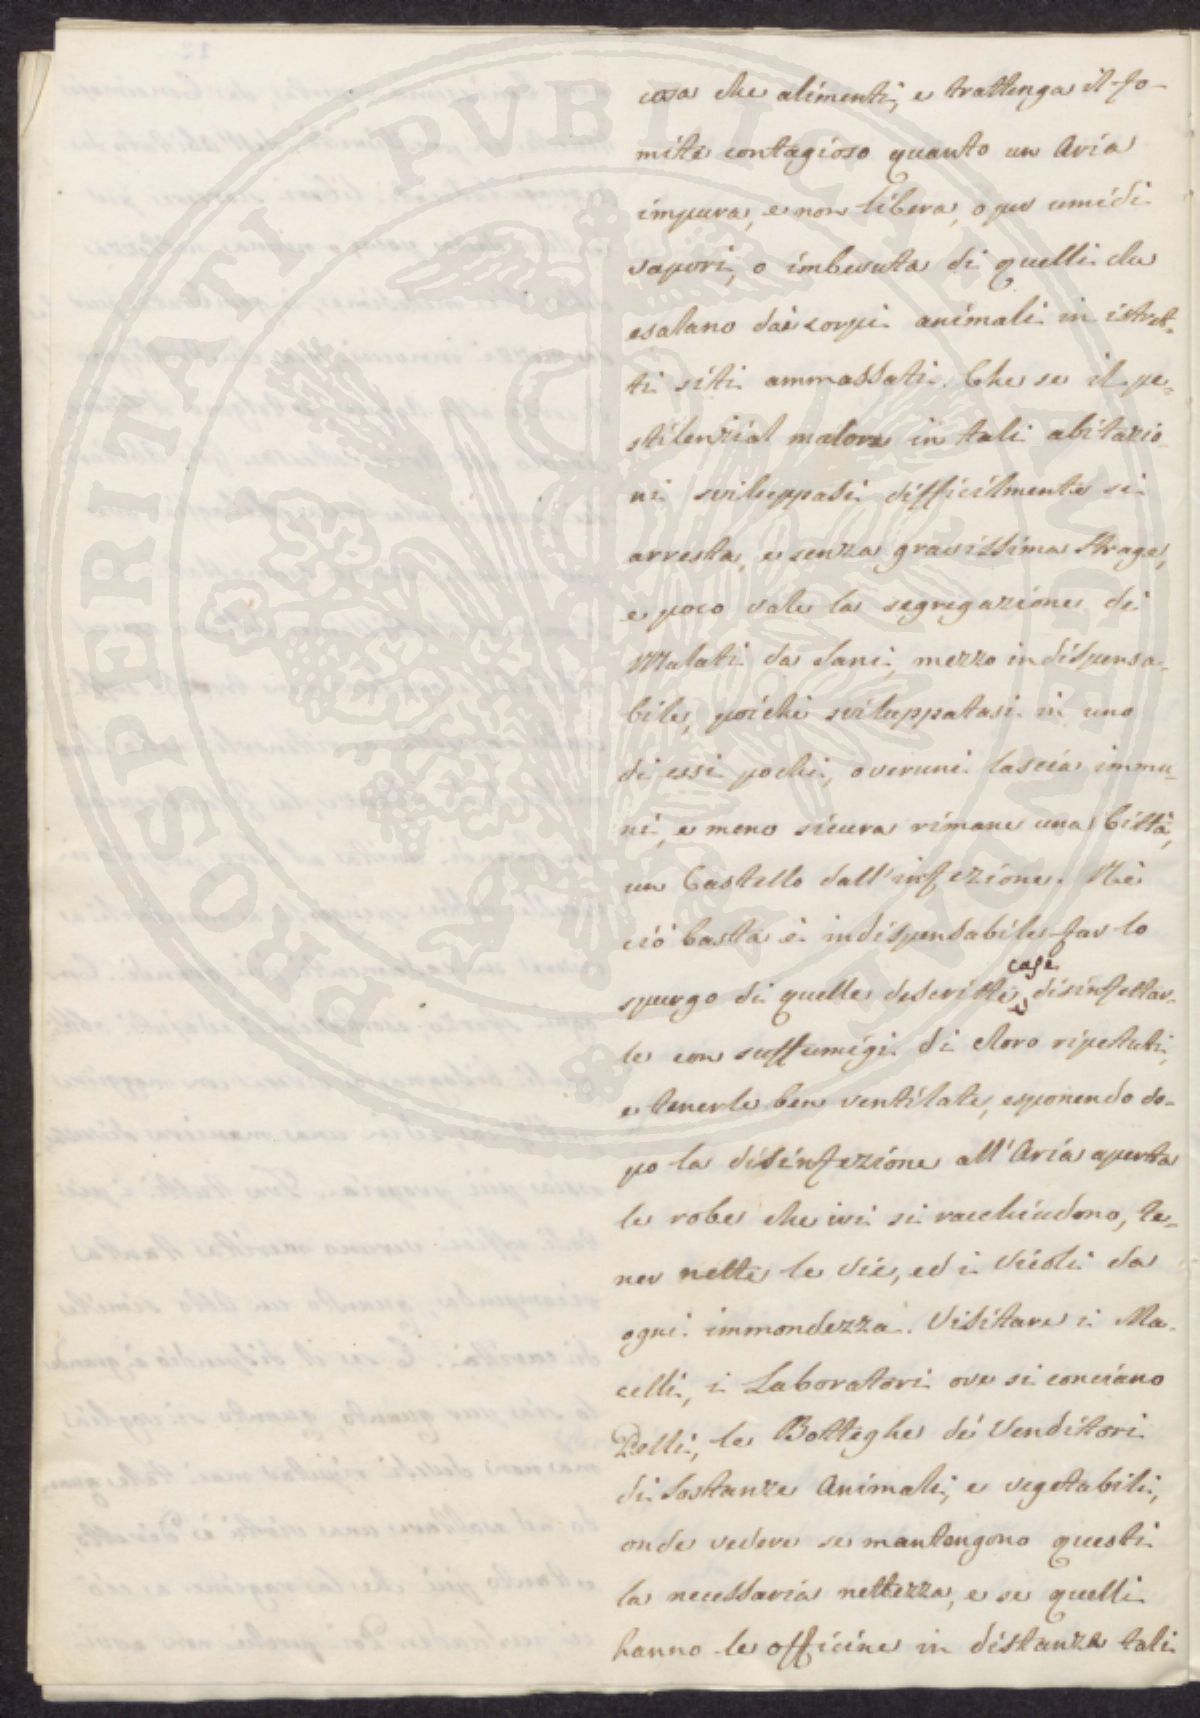 cosa che alimenti, e trattenga il fo-
mite contagioso quanto un Aria
impura, e non libera, o per umidi
vapori, o imbevuta di quelli che
esalano dai corpi animali in istret-
ti siti ammassati. Che se il pe-
stilenzial malore in tali abitazio-
ni sviluppasi difficilmente si
arresta, e senza gravissima strage,
e poco vale la segregazione di
Malati da sani, mezzo indispensa-
bile, poichè sviluppatasi in uno
di essi pochi, o veruni lascia immu-
ni, e meno sicura rimane una Città,
un Castello dall'infezione. Nè
ciò basta è indispensabile far lo
spurgo di quelle descritte case disinfettar-
le con suffumigi di cloro ripetuti,
e tenerle ben ventilate, esponendo do-
po la disinfezione all'Aria aperta
le robe che ivi si racchiudono, te-
ner nette le vie, ed i Vicoli da
ogni immondezza. Visitare i Ma-
celli, i Laboratori ove si conciano
Pelli, le Botteghe dei Venditori
di Sostanze Animali, e vegetabili,
onde vedere se mantengono questi
la necessaria nettezza, e se quelli
hanno le officine in distanza tali
PROSPERITATI PUBLICAE AUGENDAE